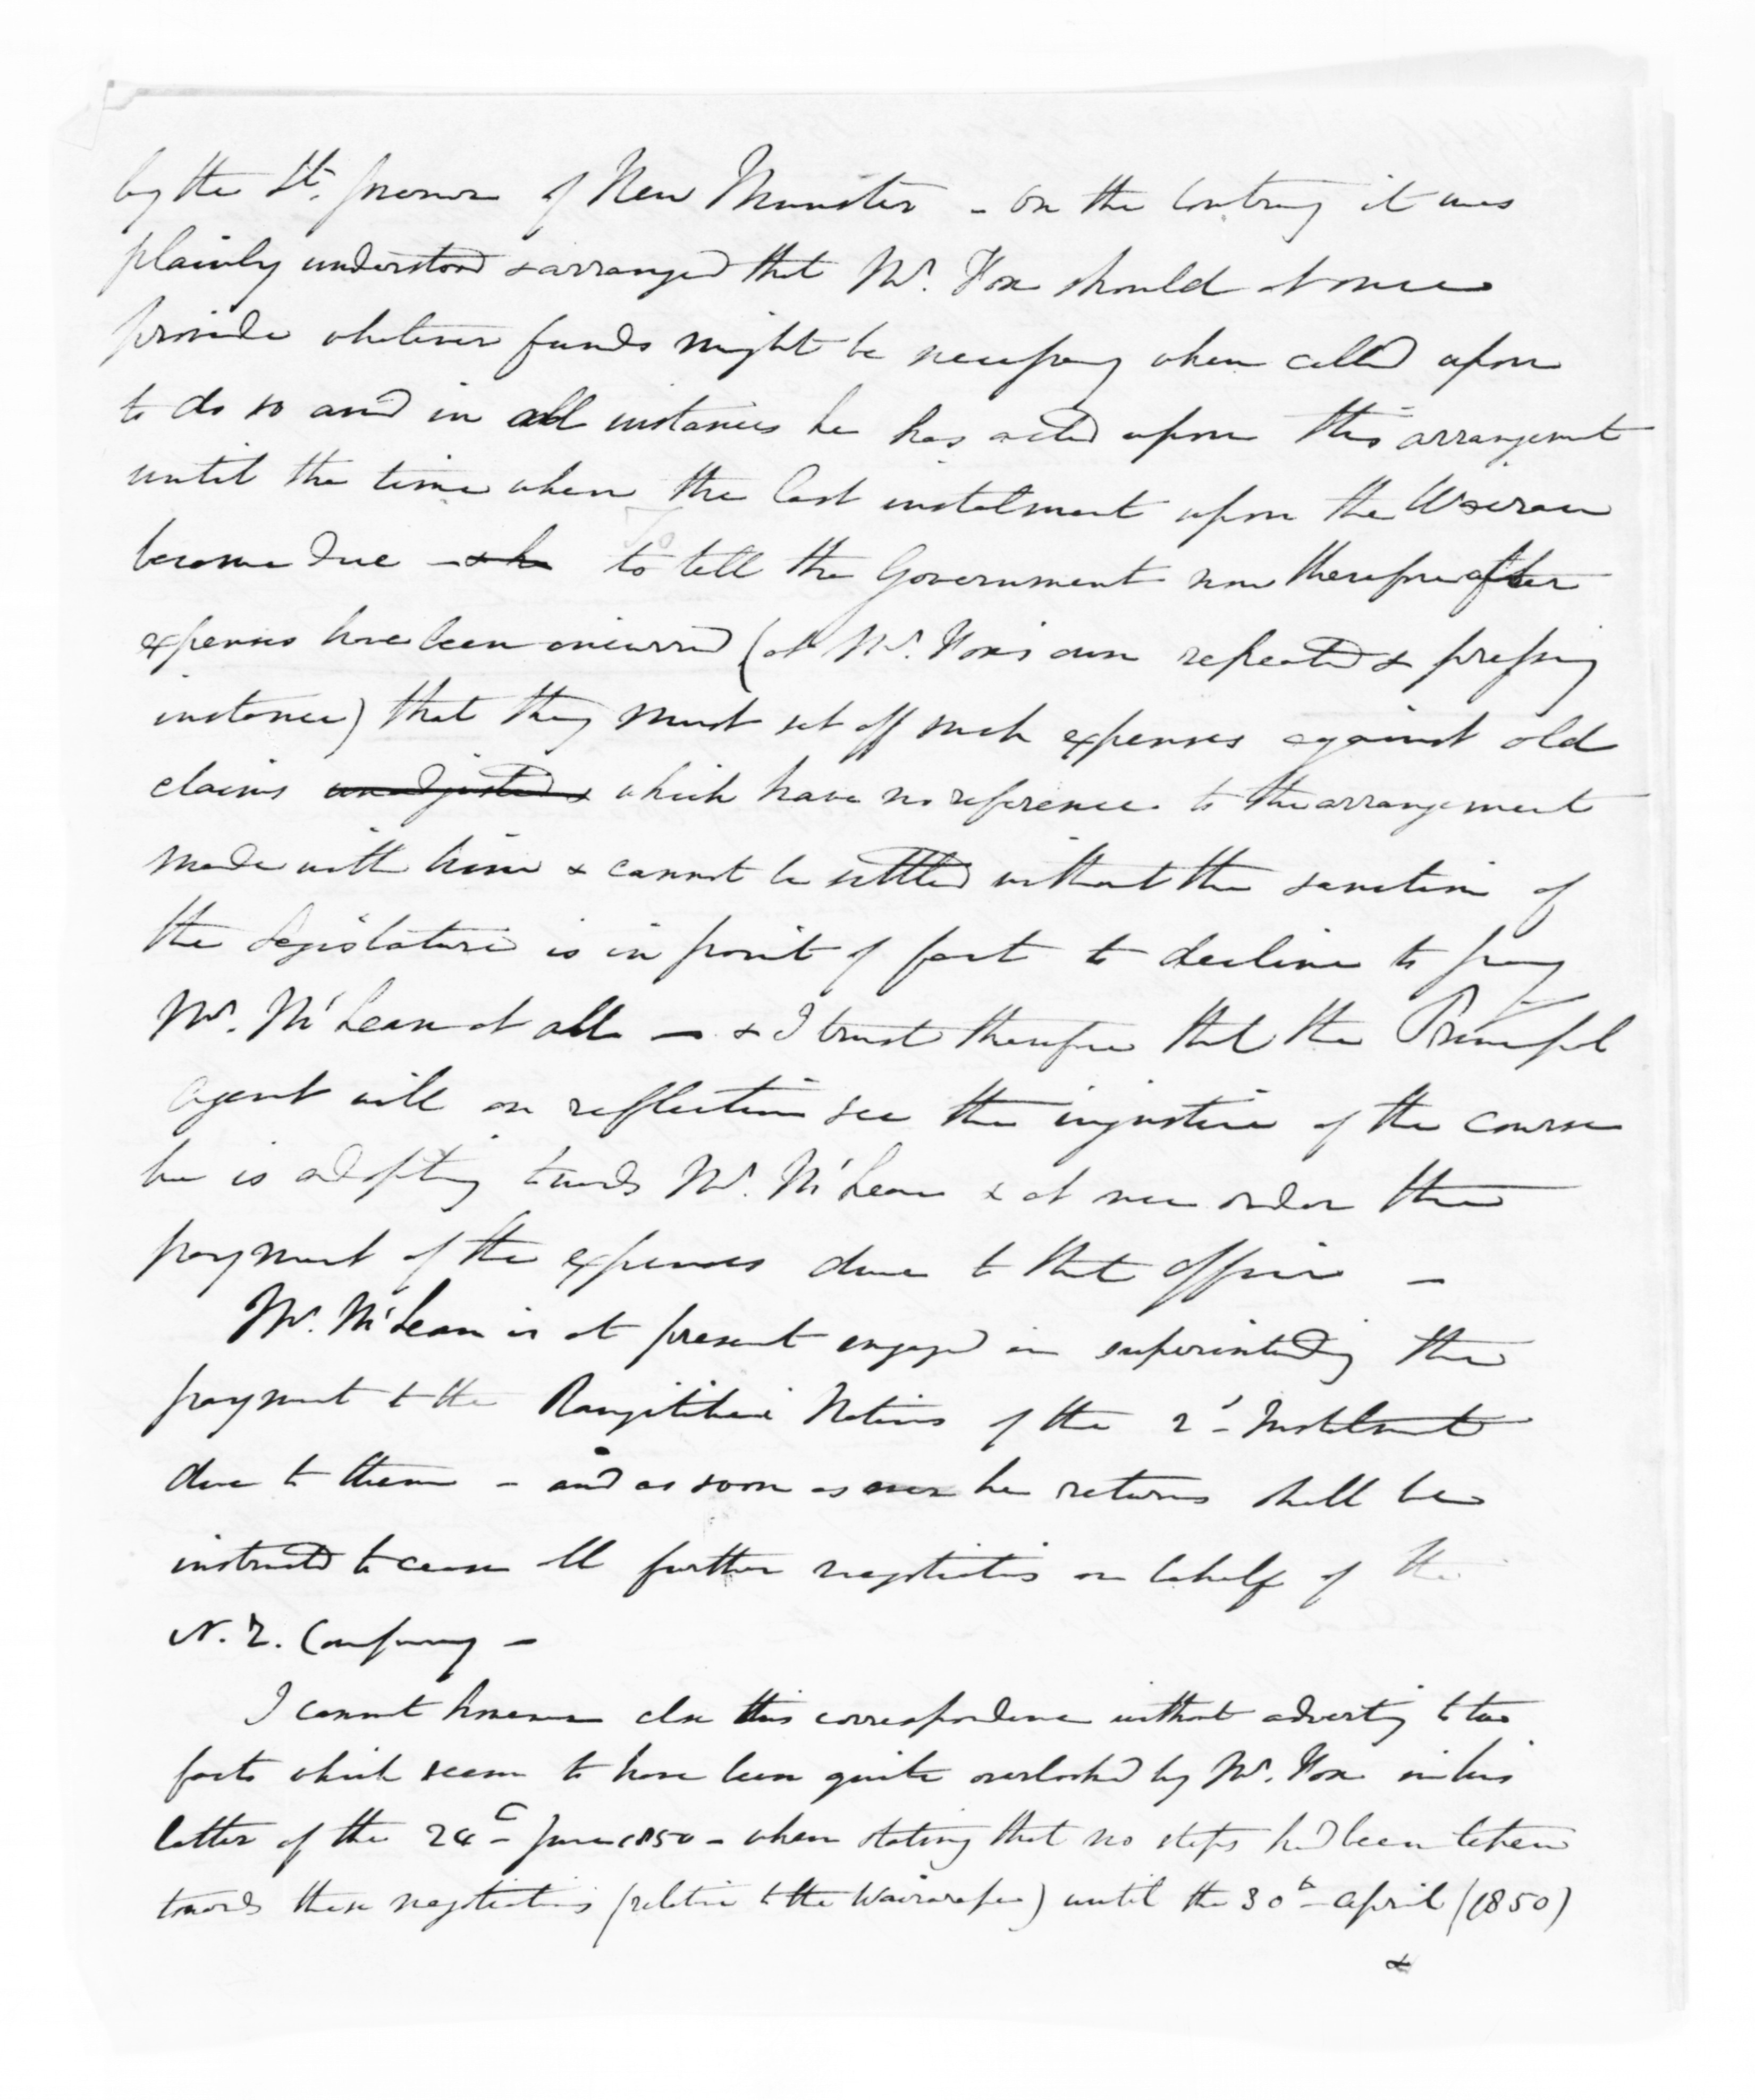 by the Lt. Governor of New Munster - on the contrary it was
plainly understood & arranged that Mr. Fox should at once
provide whatever funds might be necessary when called upon
to do so and in all instances he has acted upon this arrangement
until the time when the last instalment upon the Wairau
became due - & he to tell the Government now therefore after
expenses have been incurred (at Mr. Fox's own repeated & pressing
instance) that they must set off such expenses against old
claims unadjusted & which have no reference to the arrangement
made with him & cannot be settled without the sanction of
the Legislature is in point of fact to decline to pay
Mr. McLean at all - & I trust therefore that the Principal
Agent will on reflection see the injustice of the course
he is adopting towards Mr. McLean & at once order the
payment of the expenses due to that officer -
Mr. McLean is at present engaged in superintending the
payment to the Rangitikei Natives of the 2d. Instalment
due to them - and as soon as ever he returns shall be
instructed to cease all further negotiations on behalf of the
N.Z. Company -
I cannot however close this correspondence without adverting to two
facts which seem to have been quite overlooked by Mr. Fox in his
letter of the 24th June 1850 - when stating that no steps had been taken
towards these negotiations (relative to the Wairarapa) until the 30th April (1850)
&